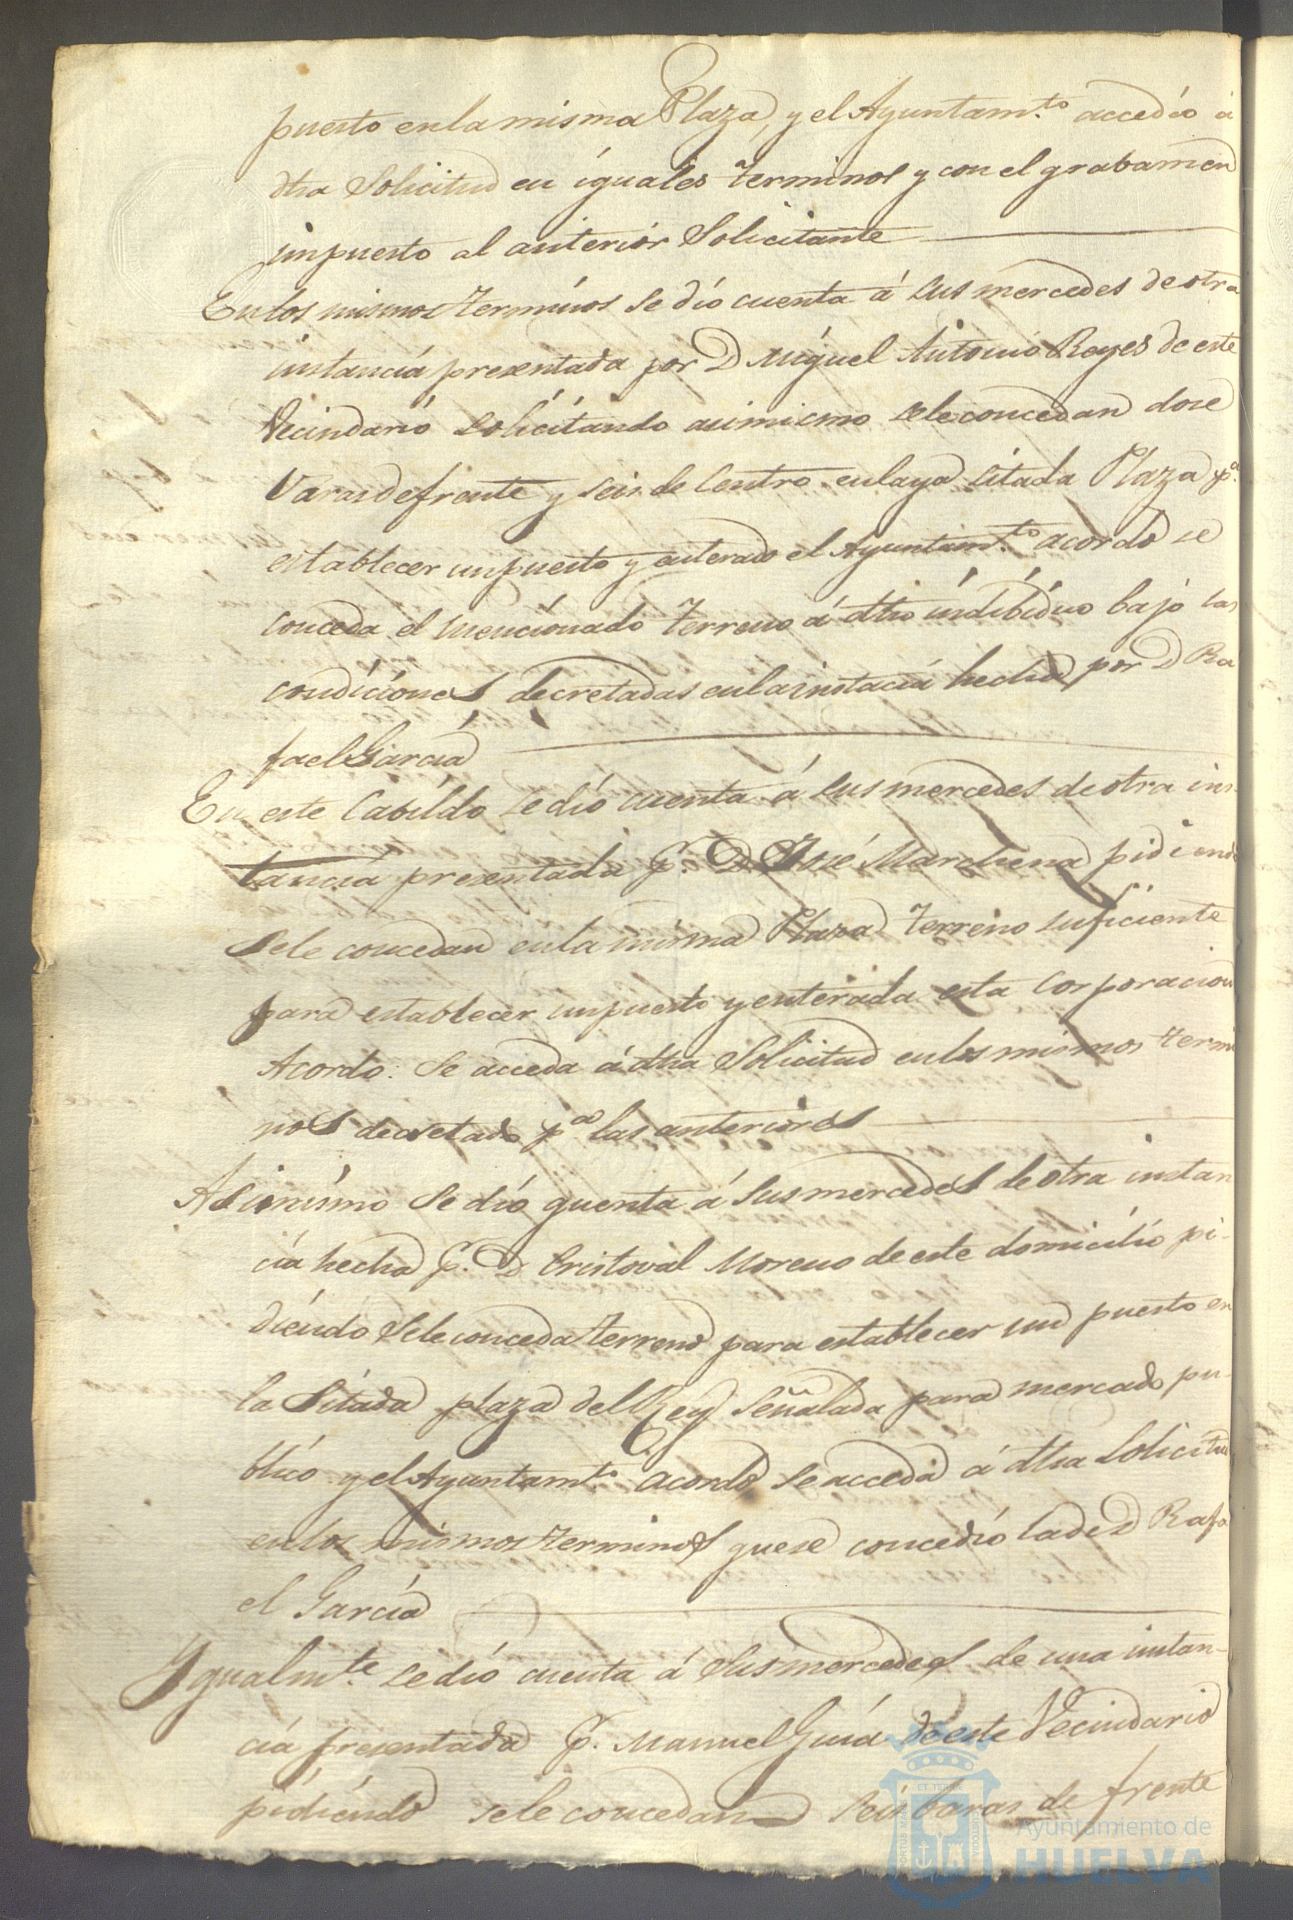 puesto en la misma Plaza, y el Ayuntam.to accedió á
dha Solicitud en iguales terminos y con el grabamen
impuesto al anterior Solicitante
En los mismos terminos se dió cuenta á sus mercedes de otra
instancia presentada por D Miguel Antonio Reyes de este
Vecindario solicitando asimismo se le concedan dose
Varas de frente y seis de Centro en la ya citada Plaza p.a
establecer un puesto y enterado el Ayuntam.to acordó se
conceda el mencionado terreno á dho indibiduo bajo las
condiciones decretadas en la instacia hecha por D Ra
fael Garcia
En este Cabildo se dió cuenta á sus mercedes de otra ins
tancia presentada p.r D José Marchena pidiendo
se le concedan en la misma Plaza terreno suficiente
para establecer un puesto y enterada esta Corporacion
Acordo: Se acceda á dha Solicitud en los mismos termi
nos decretado p.a las anteriores
Asimismo se dió quenta á sus mercedes de otra instan
cia hecha p.r D Cristoval Moreno de este domicilio pi-
diendo se le conceda terreno para establecer un puesto en
la citada plaza del Rey señalada para mercado pu-
blico y el Ayuntam.to acordó se acceda á dha Solicitud
en los mismos terminos que se concedió la de D Rafa
el Garcia
Ygualm.te se dió cuenta á sus mercedes de una instan-
cia presentada p.r Manuel Guia de este Vecindario
pidiendo se le concedan seis baras de frente
Ayuntamiento de
HUELVA